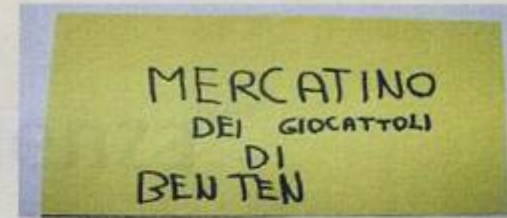 MERCATINO
DEI GIOCATTOLI
DI
BEN TEN